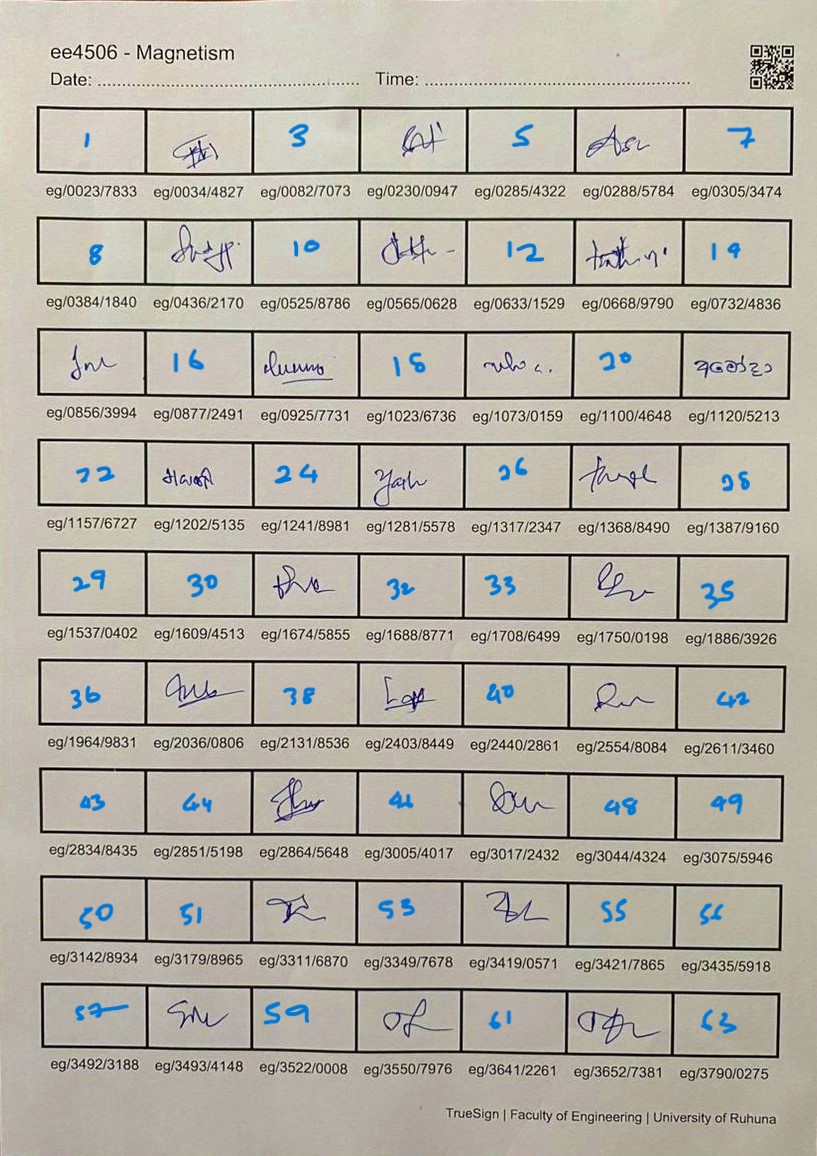 ee4506 - Magnetism
Date: ........................................................ Time: ........................................................
1 3 5 7
eg/0023/7833 eg/0034/4827 eg/0082/7073 eg/0230/0947 eg/0285/4322 eg/0288/5784 eg/0305/3474
8 10 12 14
eg/0384/1840 eg/0436/2170 eg/0525/8786 eg/0565/0628 eg/0633/1529 eg/0668/9790 eg/0732/4836
16 18 20
eg/0856/3994 eg/0877/2491 eg/0925/7731 eg/1023/6736 eg/1073/0159 eg/1100/4648 eg/1120/5213
22 24 26 28
eg/1157/6727 eg/1202/5135 eg/1241/8981 eg/1281/5578 eg/1317/2347 eg/1368/8490 eg/1387/9160
29 30 32 33 35
eg/1537/0402 eg/1609/4513 eg/1674/5855 eg/1688/8771 eg/1708/6499 eg/1750/0198 eg/1886/3926
36 38 40 42
eg/1964/9831 eg/2036/0806 eg/2131/8536 eg/2403/8449 eg/2440/2861 eg/2554/8084 eg/2611/3460
43 44 46 48 49
eg/2834/8435 eg/2851/5198 eg/2864/5648 eg/3005/4017 eg/3017/2432 eg/3044/4324 eg/3075/5946
50 51 53 55 56
eg/3142/8934 eg/3179/8965 eg/3311/6870 eg/3349/7678 eg/3419/0571 eg/3421/7865 eg/3435/5918
57 59 61 63
eg/3492/3188 eg/3493/4148 eg/3522/0008 eg/3550/7976 eg/3641/2261 eg/3652/7381 eg/3790/0275
TrueSign | Faculty of Engineering | University of Ruhuna